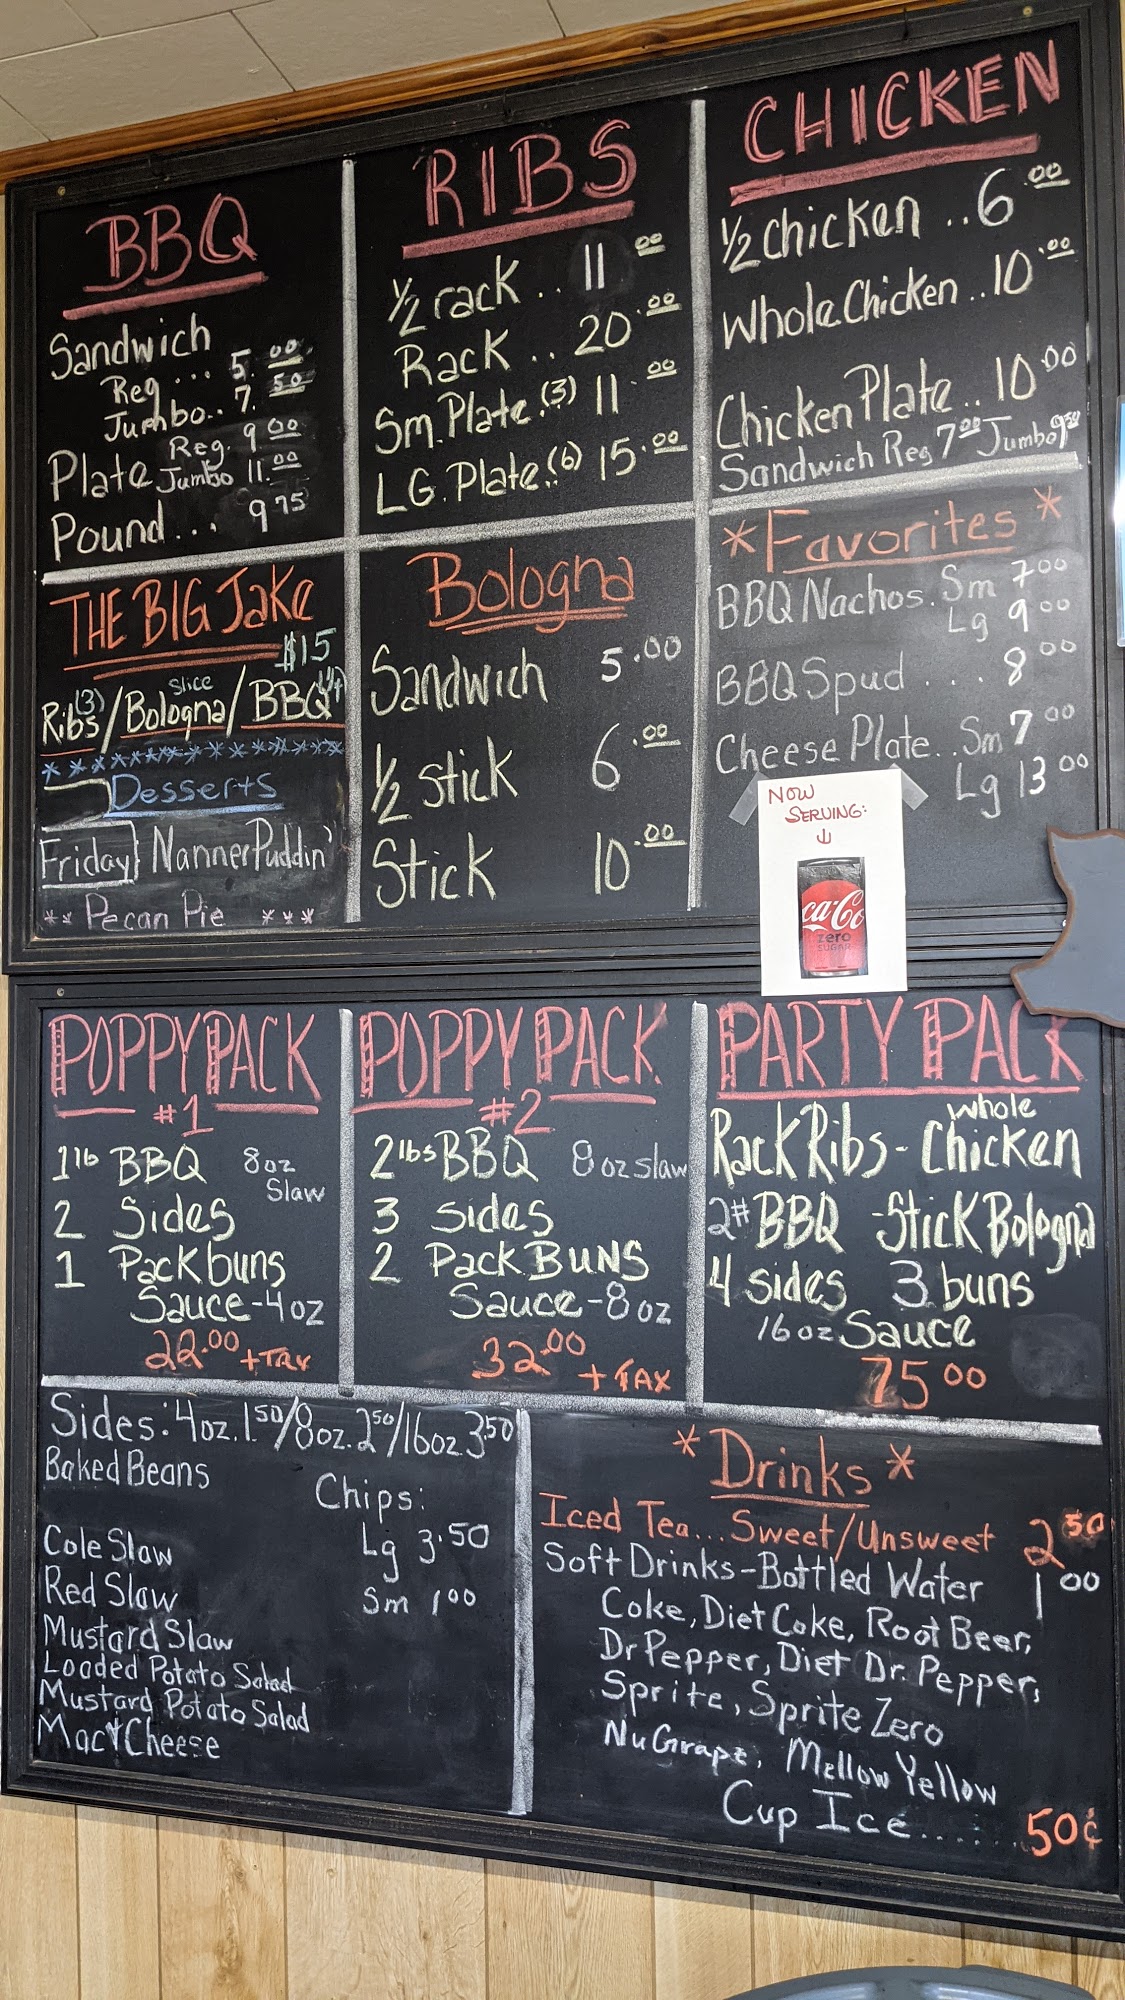 BBQ
Sandwich
Reg... 5.00
Jumbo.. 7.50
Plate Reg. 9.00
Jumbo 11.00
Pound... 9.75
RIBS
1/2 rack.. 11.00
Rack.. 20.00
Sm. Plate.(3) 11.00
LG. Plate.(6) 15.00
CHICKEN
1/2 chicken..6.00
Whole Chicken..10.00
Chicken Plate..10.00
Sandwich Reg 7.00 Jumbo
THE BIG Jake
$15
Ribs(3)/Bologna slice/BBQ
Desserts
Friday} Nanner Puddin'
** Pecan Pie ***
Bologna
Sandwich 5.00
1/2 stick 6.00
Stick 10.00
*Favorites*
BBQ Nachos. Sm 7.00
Lg 9.00
BBQ Spud.... 8.00
Cheese Plate..Sm 7.00
Lg 13.00
NOW
SERVING:
ca-Co
zero
SUGAR
POPPY PACK
#1
1 lb BBQ 8oz
Slaw
2 Sides
1 Pack buns
Sauce-4oz
22.00 +TAX
POPPY PACK
#2
2 lbs BBQ 8 oz slaw
3 sides
2 Pack BUNS
Sauce-8oz
32.00
+TAX
PARTY PACK
Rack Ribs - whole Chicken
2# BBQ - Stick Bologna
4 sides 3 buns
16oz Sauce
75.00
Sides: 4oz. 1.50/8oz. 2.50/16oz 3.50
Baked Beans
Cole Slaw
Red Slaw
Mustard Slaw
Loaded Potato Salad
Mustard Potato Salad
Mac & Cheese
Chips:
Lg 3.50
Sm 1.00
*Drinks*
Iced Tea...Sweet/Unsweet 2.50
Soft Drinks-Bottled Water 1.00
Coke, Diet Coke, Root Beer,
Dr Pepper, Diet Dr. Pepper,
Sprite, Sprite Zero
NuGrape, Mellow Yellow
Cup Ice....... 50¢